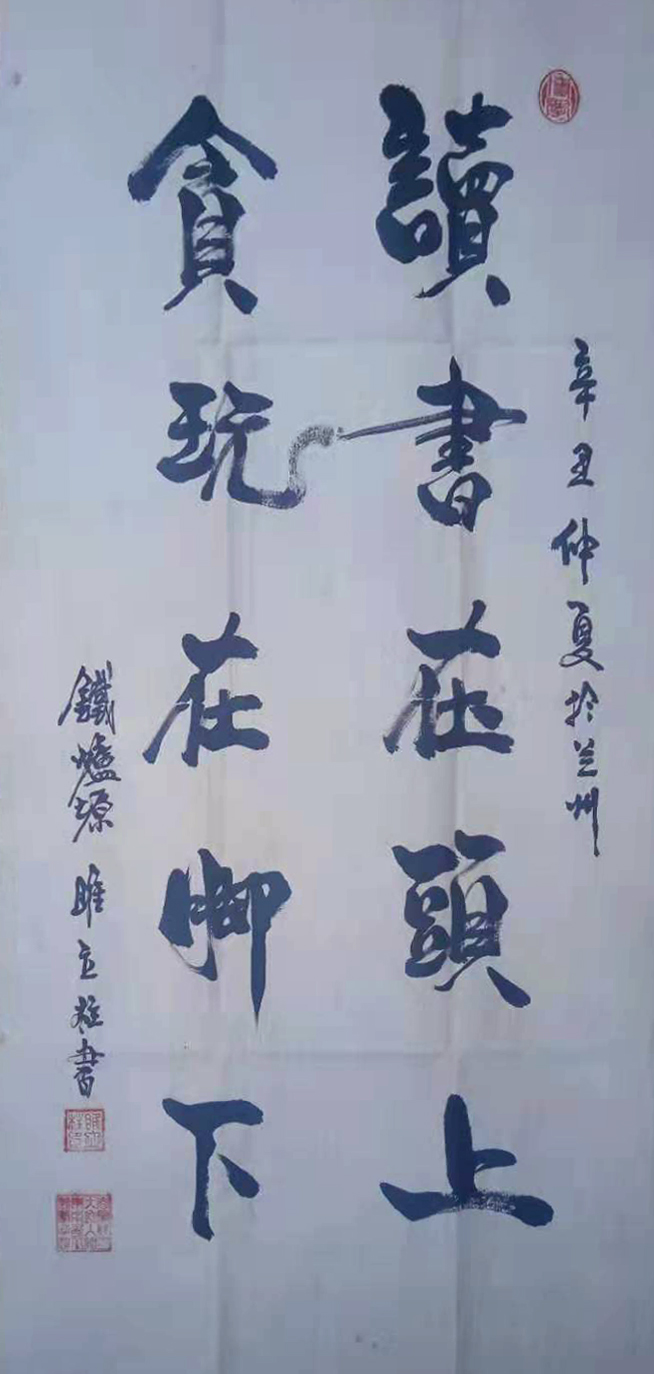 辛丑仲夏於兰州
讀書在頭上
貪玩在脚下
鐵爐塬 睢立雄書